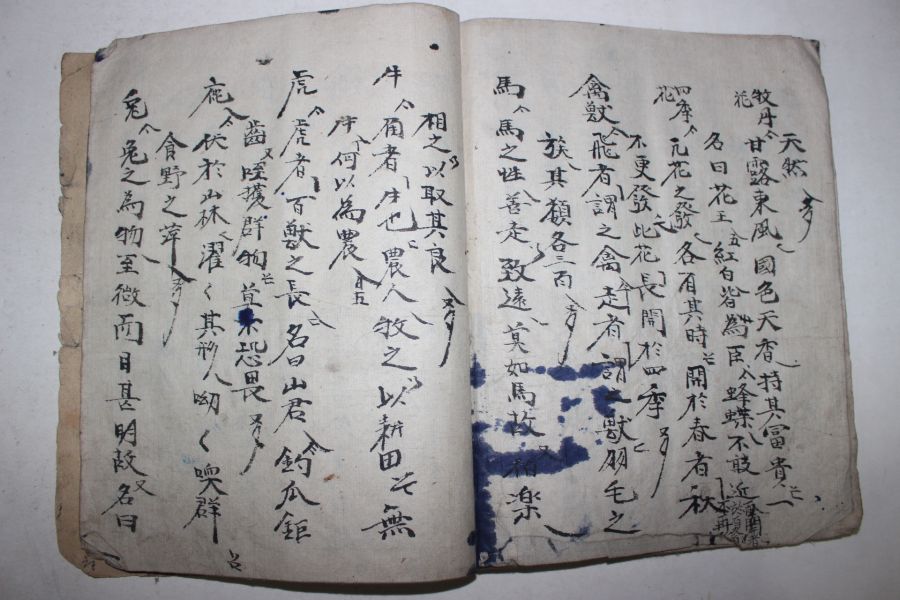 天然
牧丹 甘露東風 國色天香 持其富貴
花 名曰花王 紅白皆為臣 蜂蝶不敢近
四季 凡花之發 各有其時 開於春者 秋
花 不更發 此花長開於四季
禽獸 飛者謂之禽 走者謂之獸 羽毛之
族 其類各三百
馬 馬之性善走 致遠莫如馬 故 樂
相之以取其良
牛 角者牛也 農人牧之以耕田 無
牛何以為農
虎 虎者百獸之長 名曰山君 鉤爪鉅
齒 群物 莫不恐畏
鹿 伏於山林 濯々其形 呦々喚群
食野之苹
兔 兔之為物 至微而目甚明 故名曰